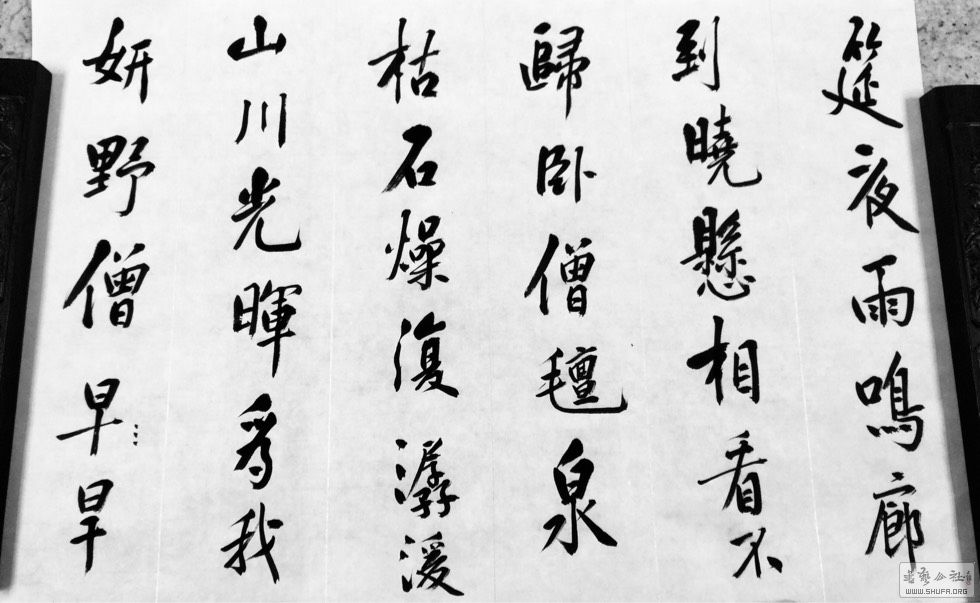 筵夜雨鳴廊
到曉懸相看不
歸臥僧氈泉
枯石燥復潺湲
山川光暉爲我
妍野僧早旱
書藝公社
WWW.SHUFA.ORG